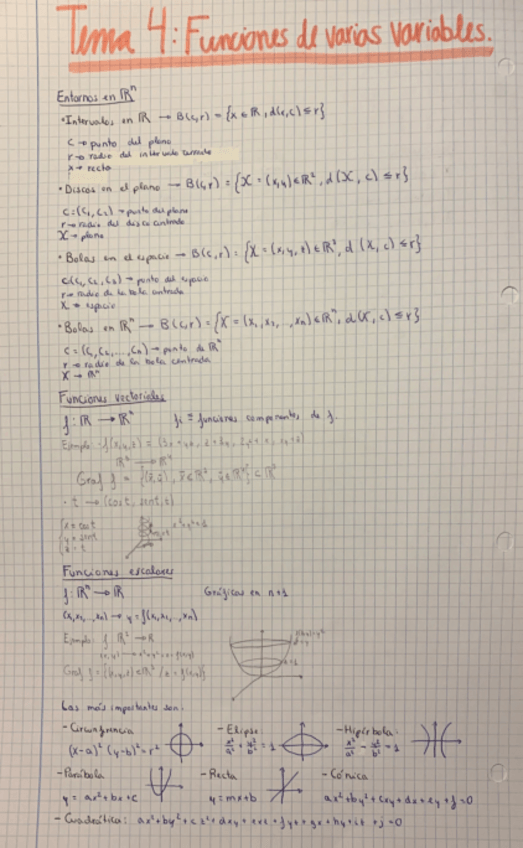 Tema 4: Funciones de varias variables.
Entornos en ℝⁿ
• Intervalos en ℝ → B(c,r) = {x ∈ ℝ, d(x,c) ≤ r}
c → punto del plano
r → radio del intervalo cerrado
x → recta
• Discos en el plano → B(c,r) = {X = (x,y) ∈ ℝ², d(X, c) ≤ r}
c = (c₁, c₂) → punto del plano
r → radio del disco centrado
X → plano
• Bolas en el espacio → B(c,r) = {X = (x,y,z) ∈ ℝ³, d(X, c) ≤ r}
c(c₁, c₂, c₃) → punto del espacio
r → radio de la bola centrada
X → espacio
• Bolas en ℝⁿ → B(c,r) = {X = (x₁, x₂, ..., xₙ) ∈ ℝⁿ, d(X, c) ≤ r}
c = (c₁, c₂, ..., cₙ) → punto de ℝⁿ
r → radio de la bola centrada
X → ℝⁿ
Funciones vectoriales
f: ℝ → ℝⁿ fᵢ = funciones componentes de f.
Ejemplo: f(x,y,z) =
Graf f =
• t → (cos t, sen t, t)
x = cos t
y = sen t
z = t
x² + y² = 1
Funciones escalares
f: ℝⁿ → ℝ Gráficas en n+1
(x₁, x₂, ..., xₙ) → y = f(x₁, x₂, ..., xₙ)
Ejemplo: f ℝ² → ℝ
Graf f = {(x,y,z) ∈ ℝ³ / z = f(x,y)}
Las más importantes son:
- Circunferencia - Elipse - Hipérbola:
(x-a)² (y-b)² = r² x²/a² + y²/b² = 1 x²/a² - y²/b² = 1
- Parábola - Recta - Cónica
y = ax² + bx + c y = mx + b ax² + by² + cxy + dx + ey + f = 0
- Cuadrática: ax² + by² + cz² + dxy + exz + fyz + gx + hy + iz + j = 0